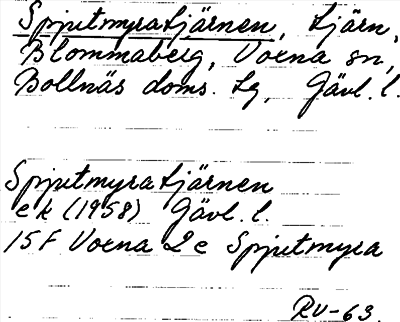 Spjutmyratjärnen, tjärn,
Blommaberg, Voxna sn,
Bollnäs doms. tg, Gävl. l.
Spjutmyratjärnen
ek (1958) Gävl. l.
15F Voxna 2e Spjutmyra
RV-63.